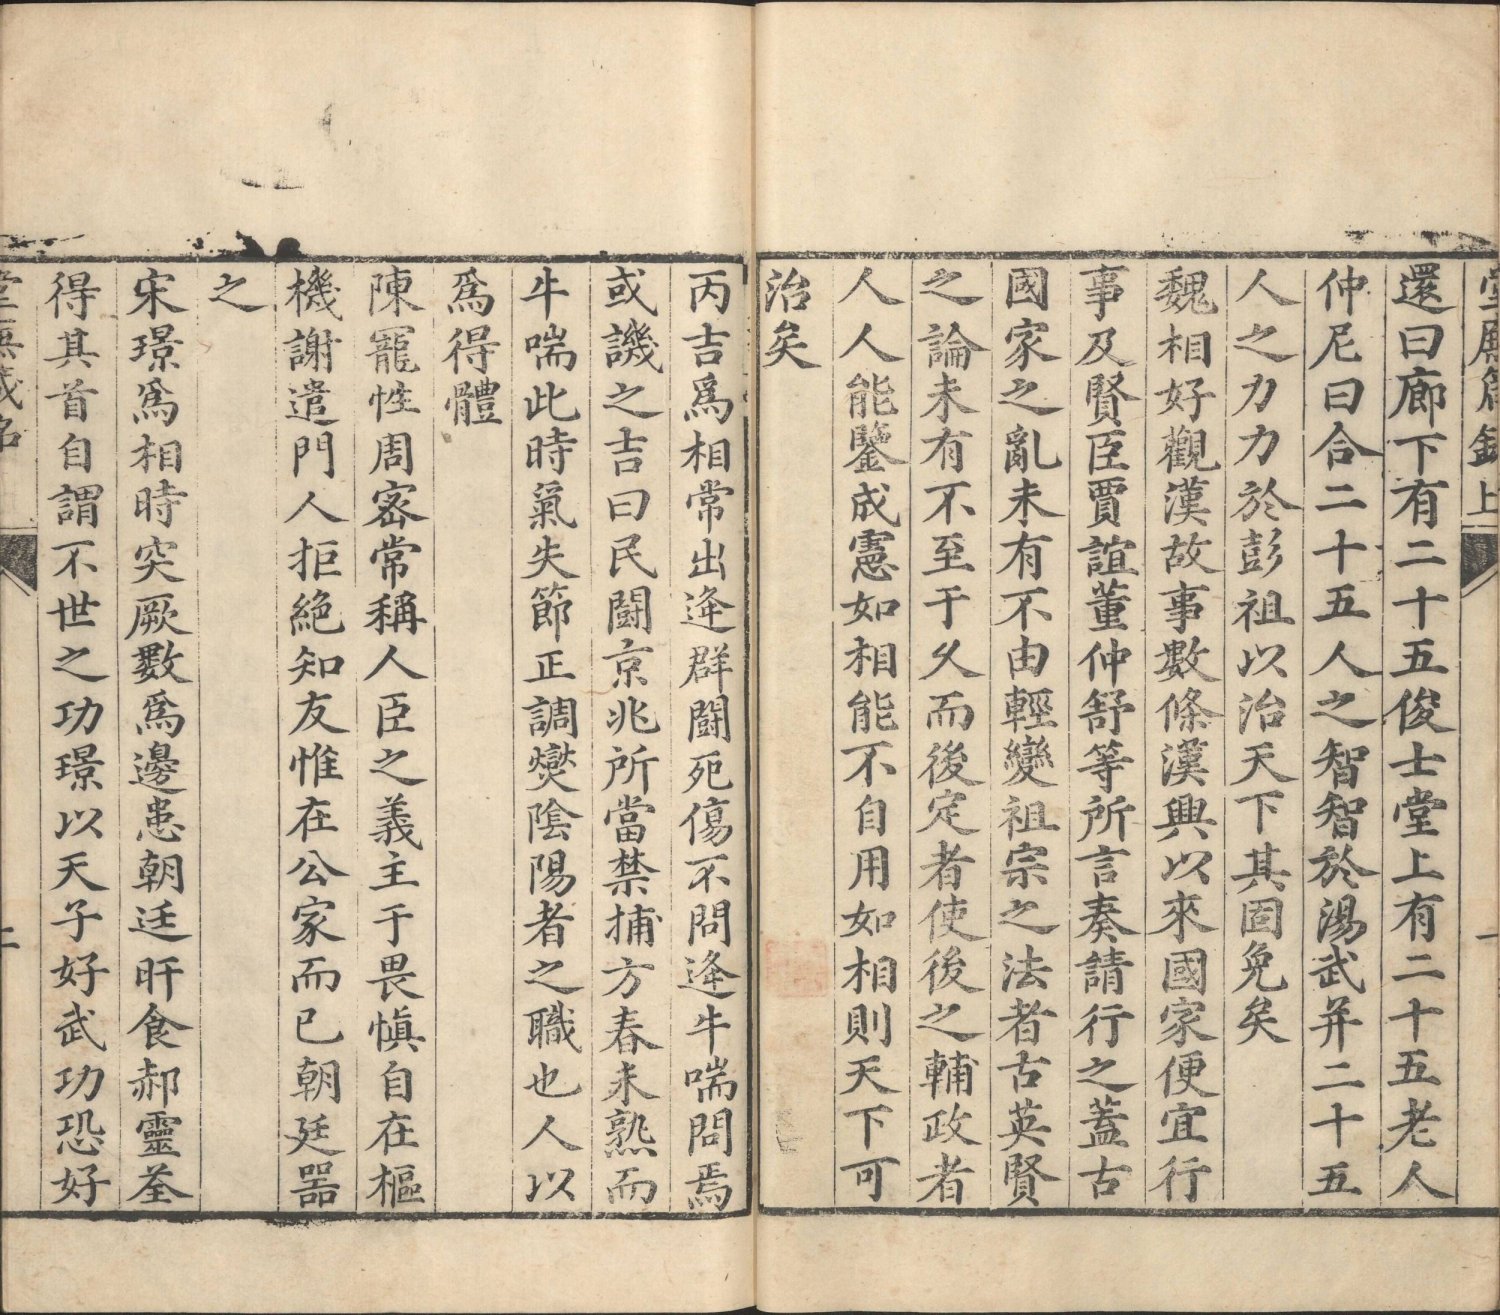 還曰廊下有二十五俊士堂上有二十五老人
仲尼曰合二十五人之智智於湯武并二十五
人之力力於彭祖以治天下其固免矣
魏相好觀漢故事數條漢興以來國家便宜行
事及賢臣賈誼董仲舒等所言奏請行之蓋古
國家之亂未有不由輕變祖宗之法者古英賢
之論未有不至于乆而後定者使後之輔政者
人人能鑒成憲如相能不自用如相則天下可
治矣
丙吉爲相常出逄群鬪死傷不問逄牛喘問焉
或譏之吉曰民鬪京兆所當禁捕方春未熟而
牛喘此時氣失節正調爕陰陽者之職也人以
爲得體
陳寵性周宻常稱人臣之義主于畏慎自在樞
機謝遣門人拒絶知友惟在公家而已朝廷器
之
宋璟爲相時突厥數爲邊患朝廷旰食郝靈荃
得其首自謂不世之功璟以天子好武功恐好